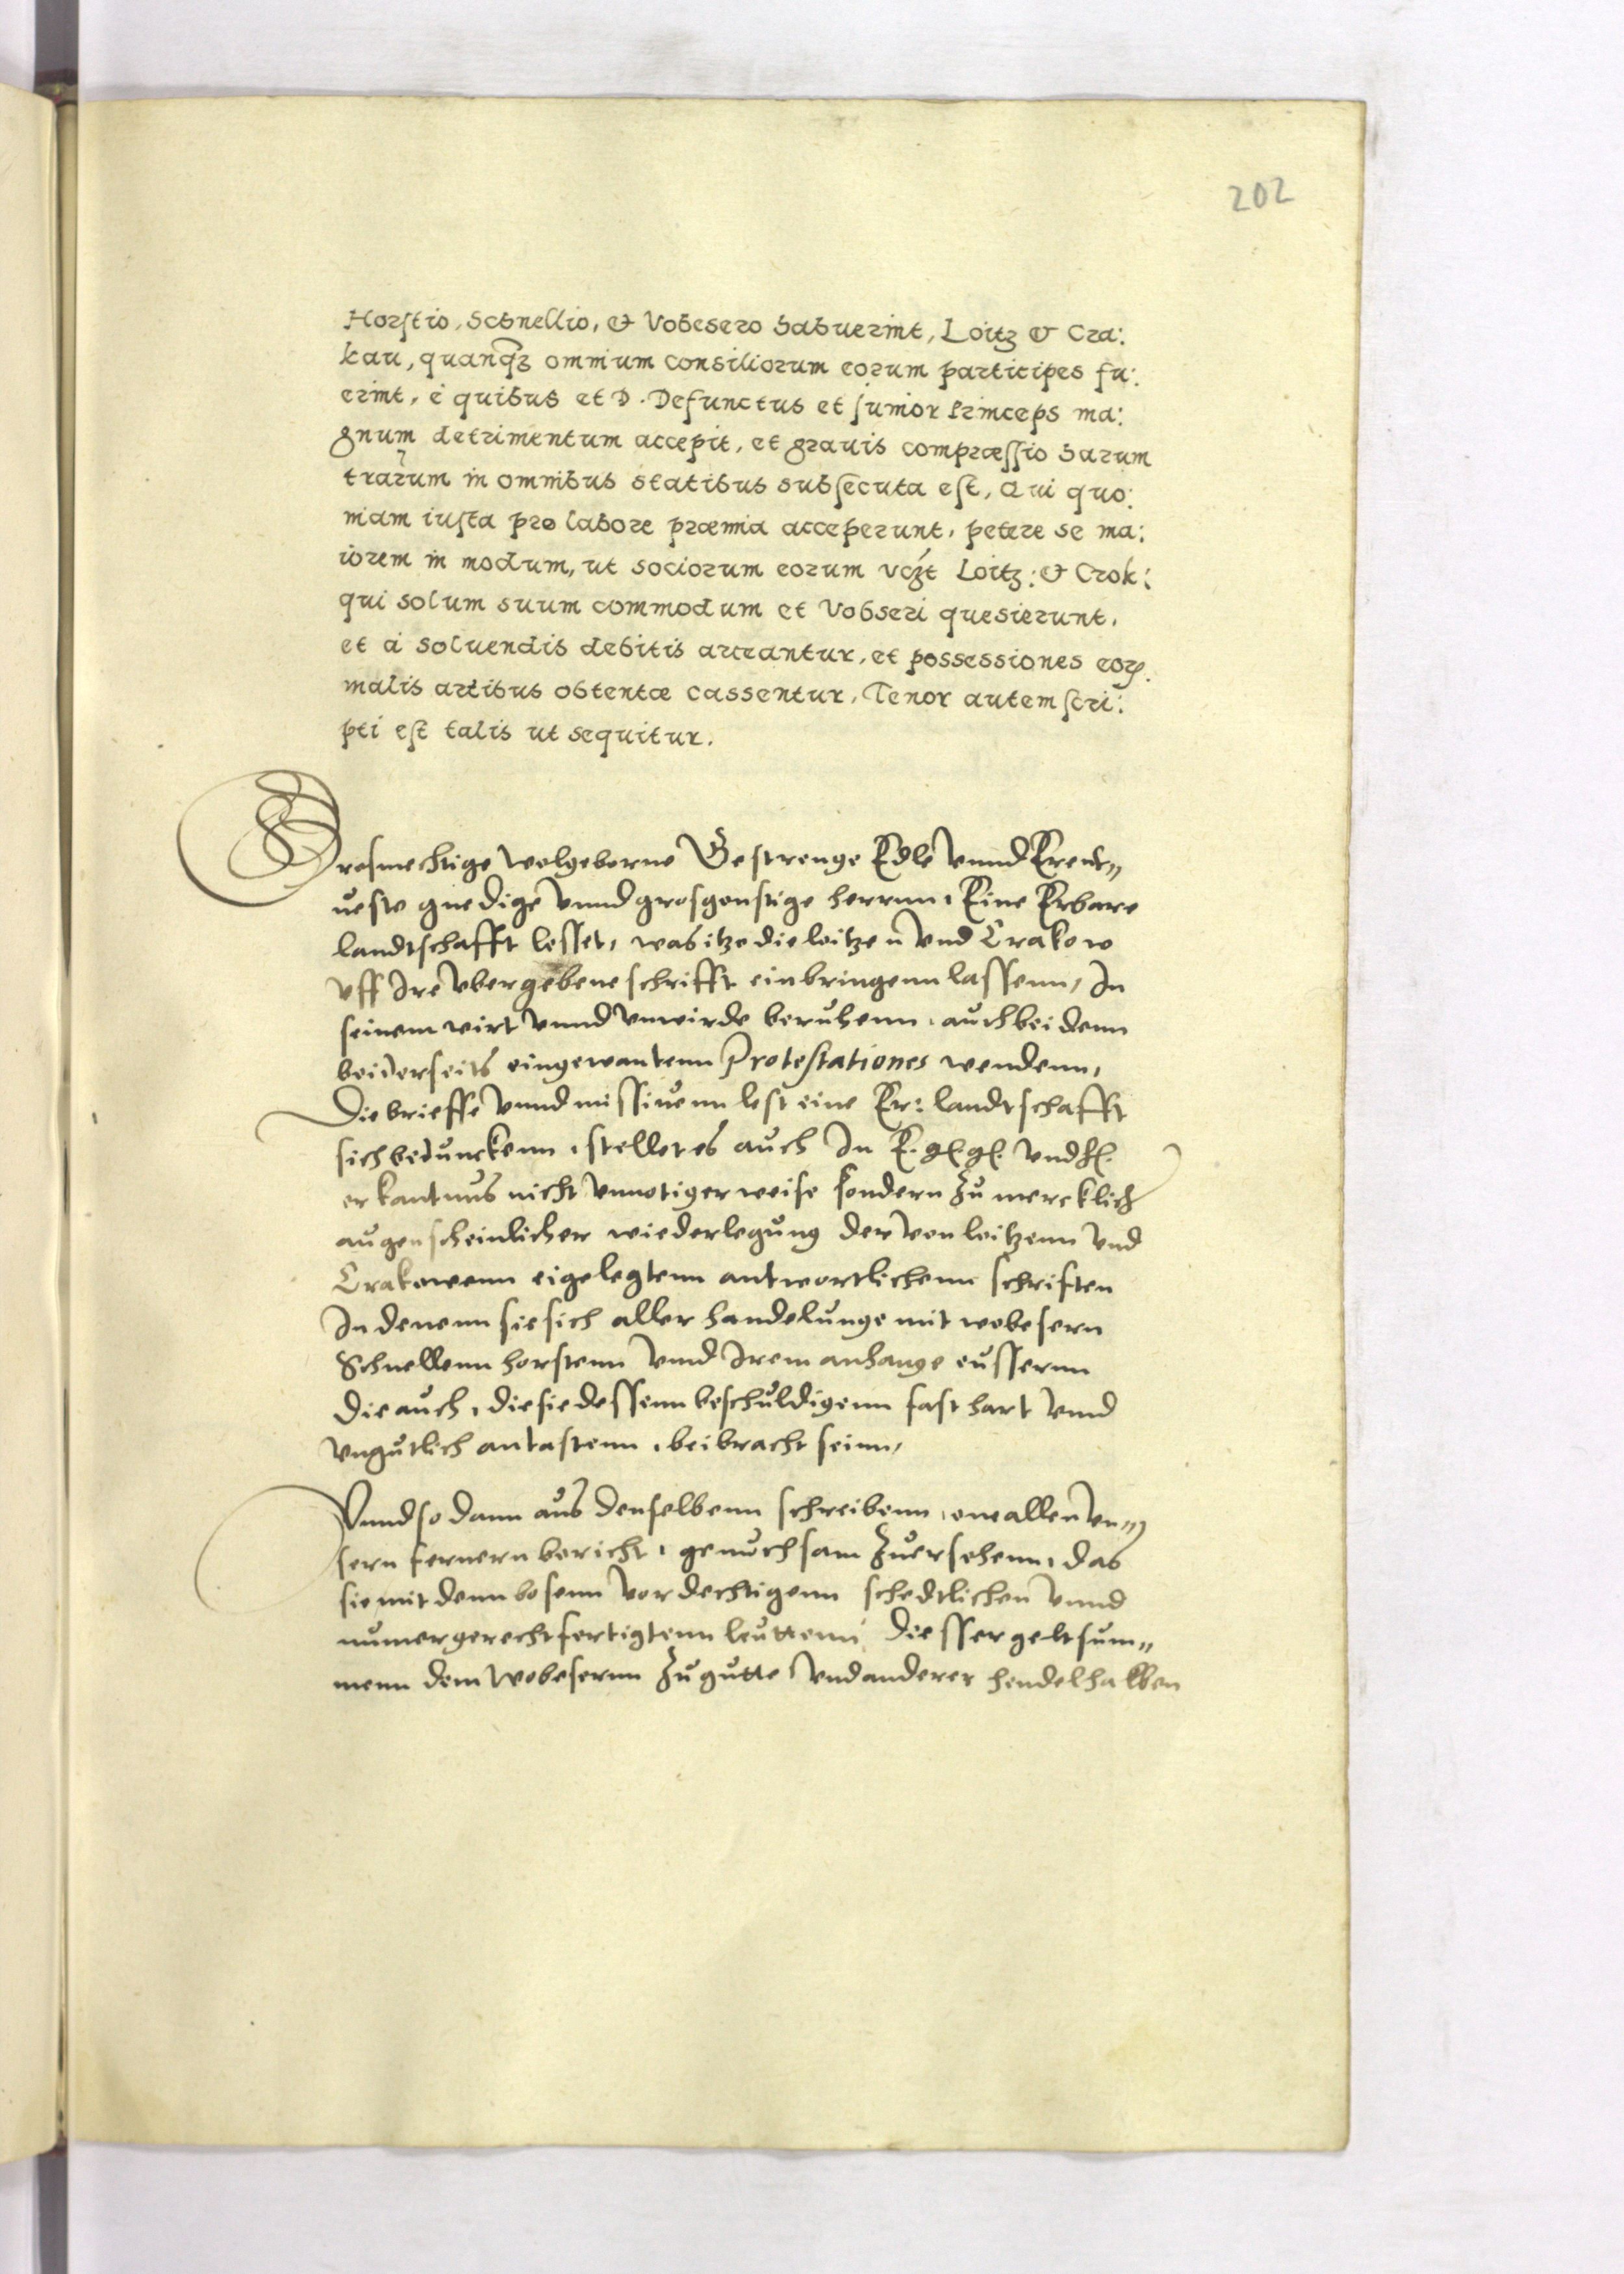 202
Horstio, Schnellio, et Vobesero habuerint, Loitz et Cra:
kau, quanq3 omnium consiliorum eorum participes fu:
erint, è quibus et D. Defunctus et junior Princeps ma:
gnum detrimentum accepit, et grauis compræssio harum
trarum in omnibus statibus subsecuta est, Qui quo:
niam iusta pro labore præmia acceperunt, petere se ma:
iorem in modum, ut sociorum eorum vczt Loitz: et Crok:
qui solum suum commodum et Vobseri quesierunt,
et à soluendis debitis arceantur, et possessiones eorꝫ
malis artibus obtentæ cassentur, Tenor autem scri:
pti est talis ut sequitur.
Grosmechtige wolgeborne Gestrenge Edle vnnd Erent„
ueste gnedige vnnd grosgonstige herrnn, Eine Erbare
landtschafft lesset, was itze die loitzen vnd Crakow
vff Ire vbergebene schrifft einbringenn lassenn, In
seinem wirt vnnd vnwirde beruhenn, auch bei denn
beiderseits eingewantenn Protestationes wendenn,
Die brieffe vnnd missiuenn lest eine Er: landtschafft
sich beduncken, stellet es auch In E. gl. gl. vnd hl.
erkantnus nicht vnnotiger weise sondern zu mercklich
augenscheinlicher wiederlegung der von loitzenn vnd
Crakowenn eigelegtenn antwortlichenn schriften
In denenn sie sich aller handelunge mit wobesern
Schnellenn horstenn vnnd Irem anhange eussernn
Die auch, die sie dessenn beschuldigenn fast hart vnnd
vngutlich antastenn, beibracht seinn,
Vnnd so dann aus denselbenn schreibenn, one allen vn„
sern fernern bericht, genuchsam zuersehenn, das
sie mit denn bosenn vordechtigenn schedtlichen vnnd
numer gerechtfertigtenn leuttenn diesser geltsum„
menn dem Wobesernn zu gutte vnd anderer hendel halben